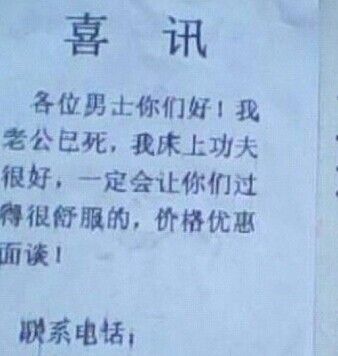 喜 讯
各位男士你们好！我
老公已死，我床上功夫
很好，一定会让你们过
得很舒服的，价格优惠
面谈！
联系电话；